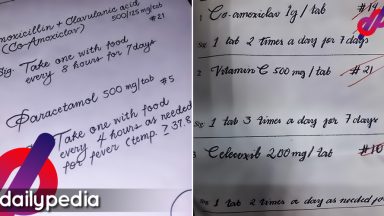 moxicillin + Clavulanic acid
(Co-Amoxiclav) 500/125 mg/tab
#21
Sig. Take one with food
every 8 hours for 7 days
Paracetamol 500 mg/tab #5
Take one with food
every 4 hours as needed
for fever (temp. ≥ 37.8
dailypedia
1 Co-amoxiclav 1g/tab #14
Sig: 1 tab 2 times a day for 7 days
2 Vitamin C 500 mg/tab #21
Sig: 1 tab 3 times a day for 7 days
3 Celecoxib 200 mg/tab #10
1 tab 2 times a day as needed fo